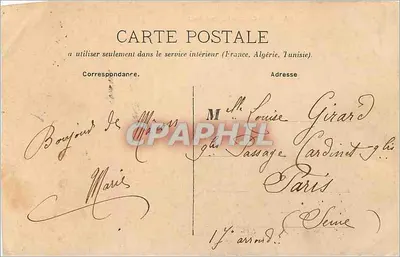 CARTE POSTALE
a utiliser seulement dans le service intérieur (France, Algérie, Tunisie).
Correspondance.
Adresse
Bonjour de
Marie
Mlle Louise Girard
9bis Passage Cardinet 9bis
Paris
(Seine)
17e arrond.
CPAPHIL